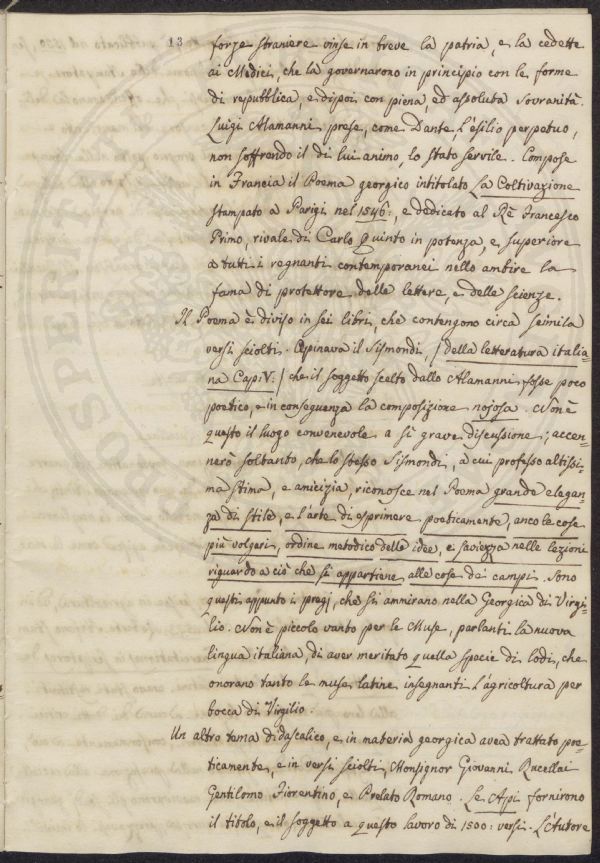 13
forze straniere vinse in breve la patria, e la cedette
ai Medici, che la governarono in principio con le forme
di repubblica, e dipoi con piena, ed assoluta Sovranità.
Luigi Alamanni prese, come Dante l'esilio perpetuo,
non soffrendo il di lui animo, lo stato servile. Compose
in Francia il Poema georgico intitolato La Coltivazione
stampato a Parigi nel 1546: e dedicato al Rè Francesco
Primo, rivale di Carlo Quinto in potenza, e superiore
a tutti i regnanti contemporanei nello ambire la
fama di protettore delle lettere, e delle scienze.
Il Poema è diviso in sei libri, che contengono circa seimila
versi sciolti. Opinava il Sismondi, /della letteratura italia-
na Cap: V:/ che il soggetto scelto dallo Alamanni fosse poco
poetico, e in conseguenza la composizione nojosa. Non è
questo il luogo convenevole a sì grave discussione; accen-
nerò soltanto, che lo stesso Sismondi, a cui professo altissi-
ma stima, e amicizia, riconosce nel Poema grande elegan-
za di stile, e l'arte di esprimere poeticamente, anco le cose
più volgari, ordine metodico delle idee, e saviezza nelle lezioni
riguardo a ciò che si appartiene alle cose dei campi. Sono
questi appunto i pregj, che si ammirano nella Georgica di Virgi-
lio. Non è piccolo vanto per le Muse, parlanti la nuova
lingua italiana, di aver meritato quella specie di lodi, che
onorano tanto le muse latine insegnanti l'agricoltura per
bocca di Virgilio.
Un altro tema didascalico, e in materia georgica avea trattato poe-
ticamente, e in versi sciolti, Monsignor Giovanni Rucellai
Gentilomo Fiorentino, e Prelato Romano. Le Api fornirono
il titolo, e il soggetto a questo lavoro di 1500: versi. L'Autore